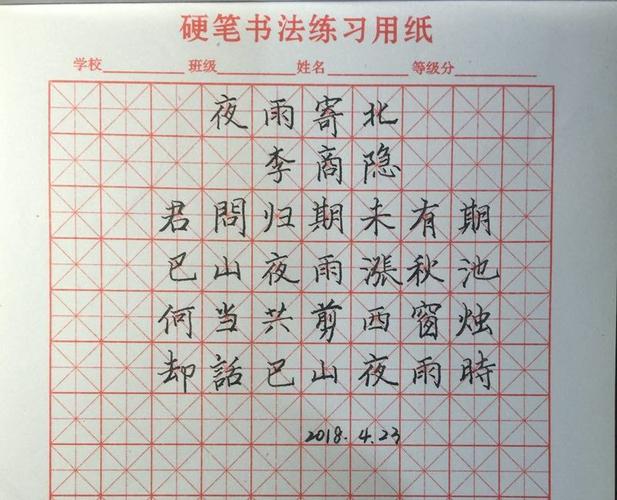 硬笔书法练习用纸
学校 班级 姓名 等级分
夜雨寄北
李商隐
君問归期未有期
巴山夜雨漲秋池
何当共剪西窗烛
却話巴山夜雨時
2018.4.23